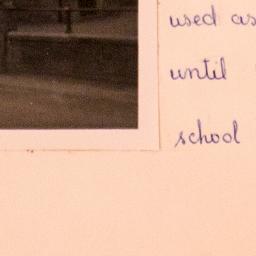 used as
until
school